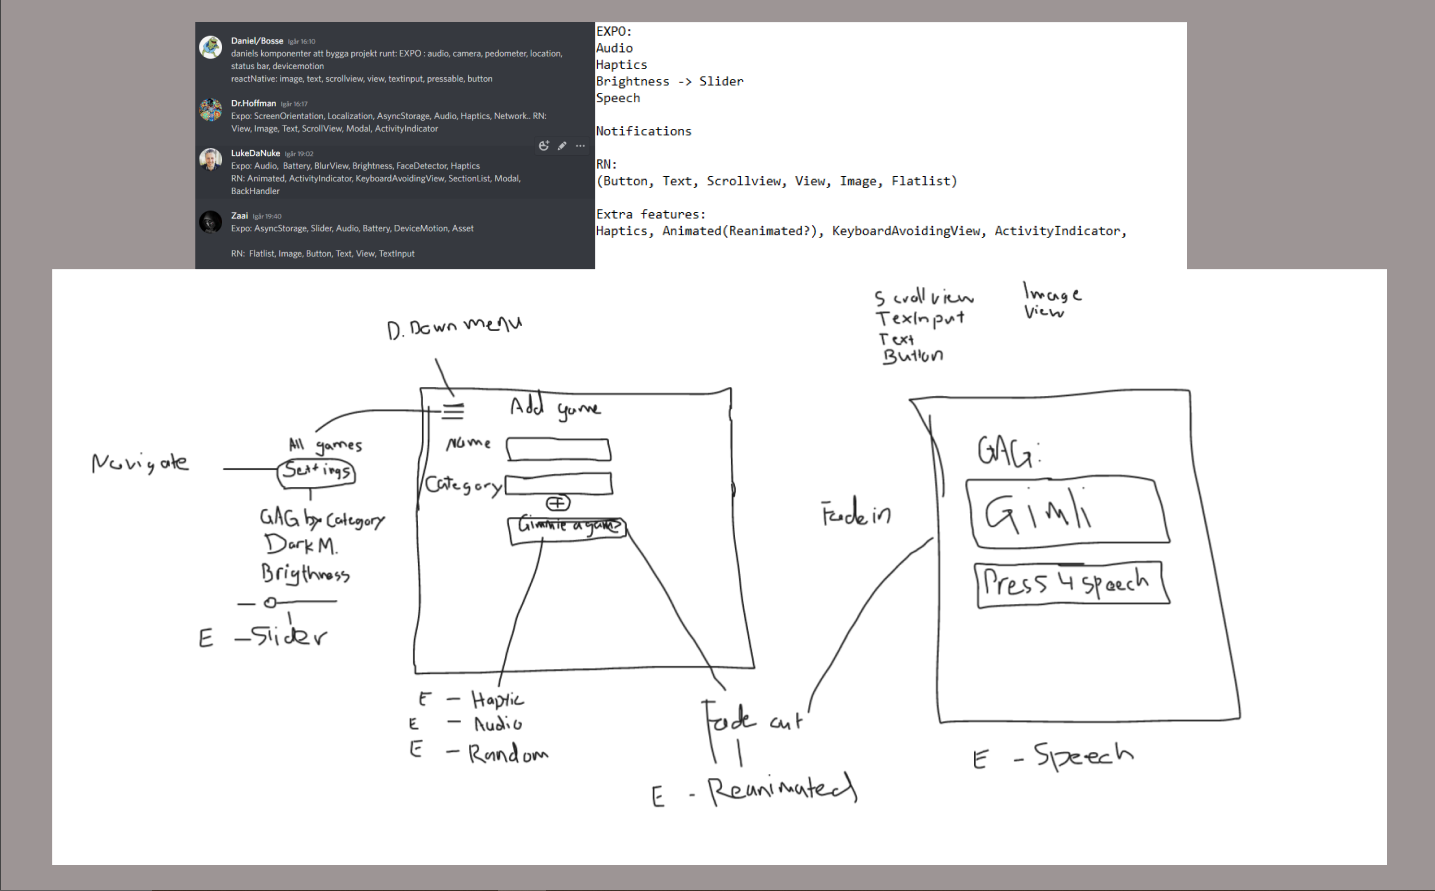 Daniel/Bosse Igår 16:10
daniels komponenter att bygga projekt runt: EXPO : audio, camera, pedometer, location,
status bar, devicemotion
reactNative: image, text, scrollview, view, textinput, pressable, button
Dr.Hoffman Igår 16:17
Expo: ScreenOrientation, Localization, AsyncStorage, Audio, Haptics, Network.. RN:
View, Image, Text, ScrollView, Modal, ActivityIndicator
LukeDaNuke Igår 19:02
Expo: Audio, Battery, BlurView, Brightness, FaceDetector, Haptics
RN: Animated, ActivityIndicator, KeyboardAvoidingView, SectionList, Modal,
BackHandler
Zaai Igår 19:40
Expo: AsyncStorage, Slider, Audio, Battery, DeviceMotion, Asset
RN: Flatlist, Image, Button, Text, View, TextInput
EXPO:
Audio
Haptics
Brightness -> Slider
Speech
Notifications
RN:
(Button, Text, Scrollview, View, Image, Flatlist)
Extra features:
Haptics, Animated(Reanimated?), KeyboardAvoidingView, ActivityIndicator,
Scrollview
TexInput
Text
Button
Image
View
D. Down menu
Navigate
All games
Settings
GAG by Category
Dark M.
Brigthness
E - Slider
Add game
Name
Category
+
Gimmie a game
E - Haptic
E - Audio
E - Random
Fade out
E - Reanimated
Fade in
GAG:
Gimli
Press 4 speech
E - Speech